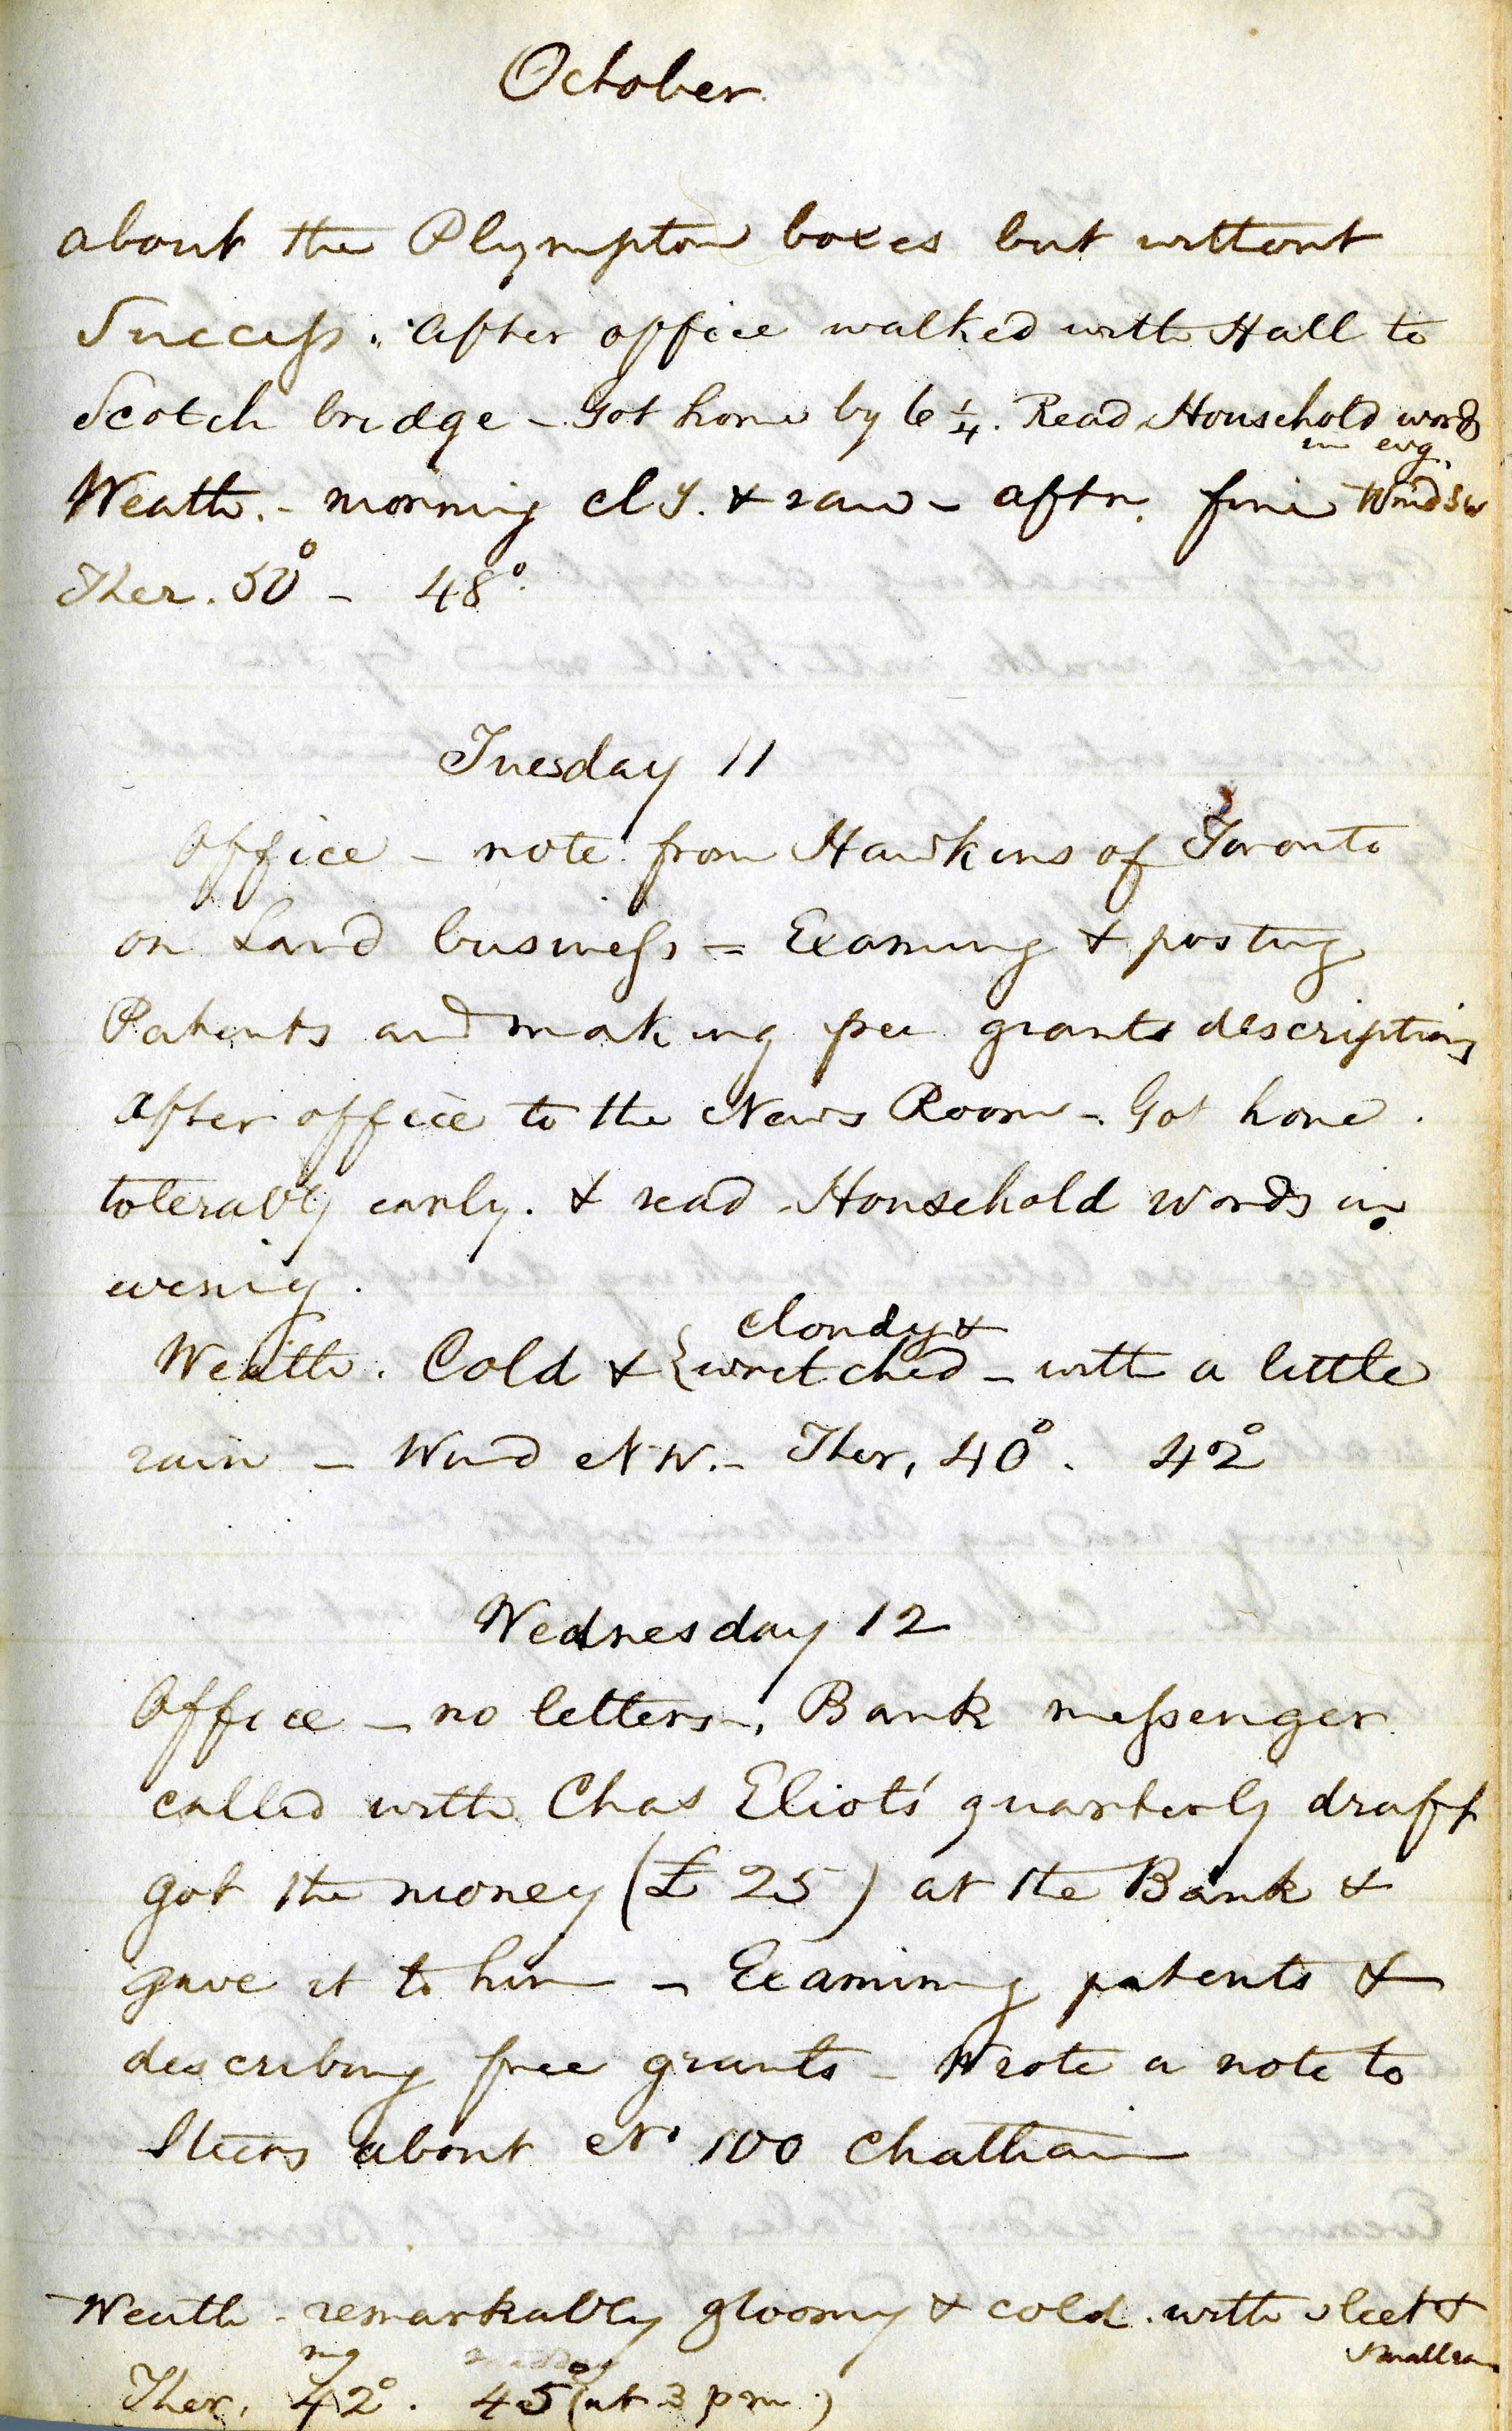 October
about the Plympton boxes but without
Success. After office walked with Hall to
Scotch bridge - Got home by 6 1/4. Read Household words
in evg.
Weath. - morning cly. & raw - aftn. fine Wind SW
Ther. 50° - 48°
Tuesday 11
Office - note from Hawkins of Toronto
on Land business = Examing & postug
Patents and making free grants descriptions
After office to the News Room - Got home.
tolerably early. & read Household Words in
evenig.
cloudy &
Weath. Cold & wretched - with a little
rain - Wind N W. - Ther, 40°. 42°
Wednesday 12
Office - no letters -, Bank messenger
called with Chas Eliots' quarterly draft
got the money (£ 25) at the Bank &
gave it to him - Examining patents &
describing free grants - Wrote a note to
Steers about No 100 Chatham
Weath - remarkably gloomy & cold. with sleet &
small rain
mg
Ther. 42°. 45° (at 3 pm.)